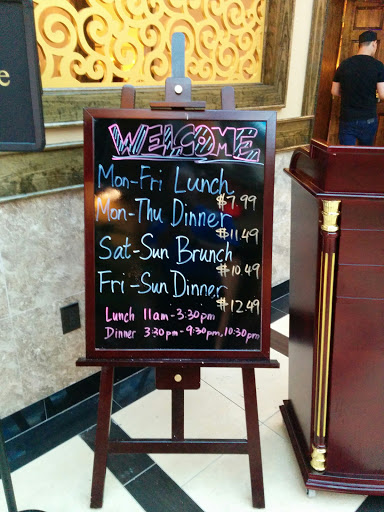 e
WELCOME
Mon-Fri Lunch
$7.99
Mon-Thu Dinner
$11.49
Sat-Sun Brunch
$10.49
Fri-Sun Dinner
$12.49
Lunch 11am-3:30pm
Dinner 3:30pm-9:30pm, 10:30pm